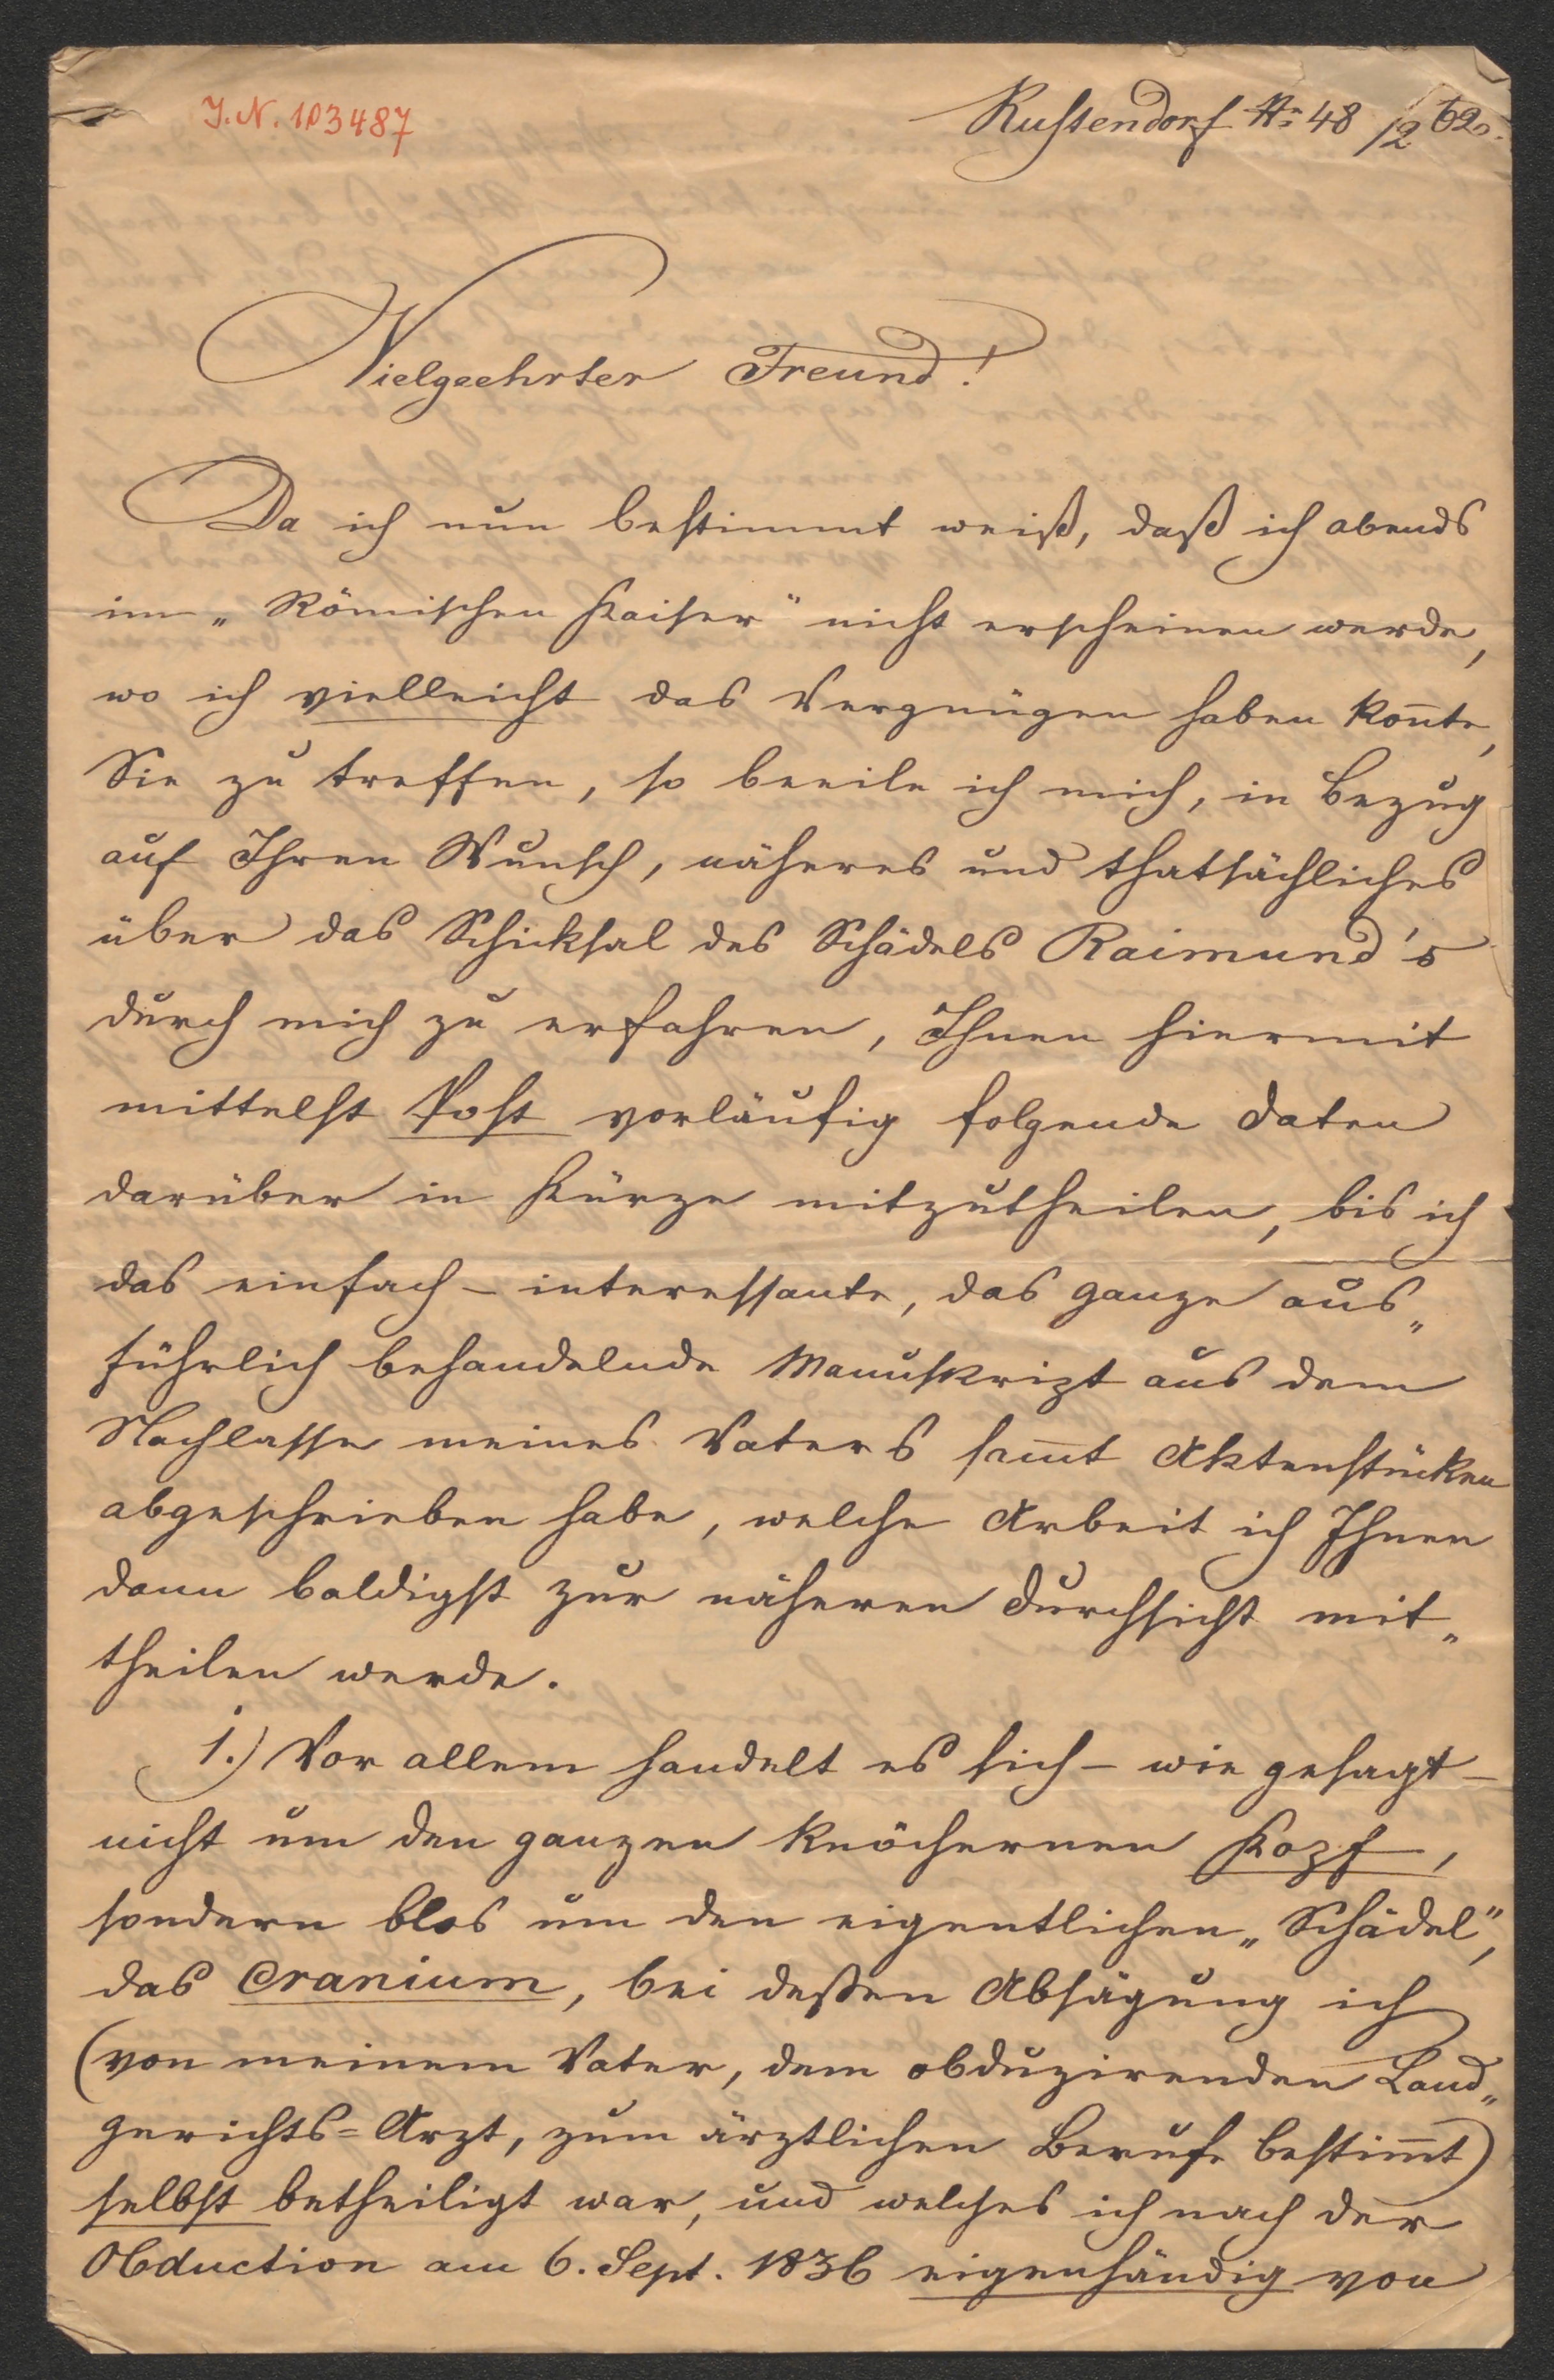 J. N. 103487
Rustendorf No 48 /2 62.
Vielgeehrter Freund!
Da ich nun bestimmt weiß, daß ich abends
im „Römischen Kaiser" nicht erscheinen werde,
wo ich vielleicht das Vergnügen haben kon̄te,
Sie zu treffen, so beeile ich mich, in Bezug
auf Ihren Wunsch, näheres und thatsächliches
über das Schicksal des Schädels Raimund's
durch mich zu erfahren, Ihnen hiermit
mittelst Post vorläufig folgende Daten
darüber in Kürze mitzutheilen, bis ich
das einfach-interessante, das ganze aus„
führlich behandelnde Manuskript aus dem
Nachlasse meines Vaters sam̄t Aktenstücken
abgeschrieben habe, welche Arbeit ich Ihnen
dann baldigst zur näheren Durchsicht mit„
theilen werde.
1.) Vor allem handelt es sich - wie gesagt -
nicht um den ganzen knöchernen Kopf,
sondern blos um den eigentlichen „Schädel",
das Cranium, bei deßen Absägung ich
(von meinem Vater, dem obduzirenden Land„
gerichts=Arzt, zum ärztlichen Berufe bestim̄t)
selbst betheiligt war, und welches ich nach der
Obduction am 6. Sept. 1836 eigenhändig von